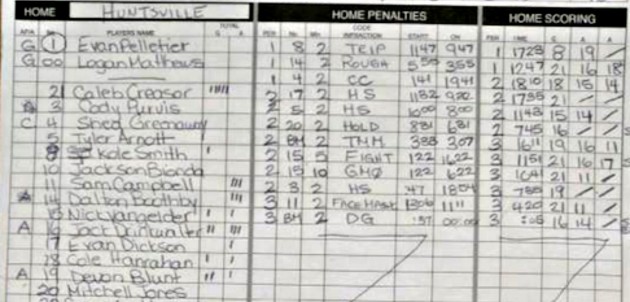 HOME HUNTSVILLE HOME PENALTIES HOME SCORING
PLAYERS NAME TOTAL G A PER No. Min CODE INFRACTION START ON PER TIME G A A
G 1 Evan Pelletier 1 8 2 TRIP 1147 947 1 1728 8 19 /
G 00 Logan Matthews 1 14 2 ROUGH 555 355 1 1247 21 16 18
1 4 2 CC 141 1941 2 1810 18 15 14
21 Caleb Creasor 2 17 2 HS 1132 932 2 1735 21 / /
3 Cody Purvis 2 5 2 HS 1000 800 2 1143 15 14 /
C 4 Shea Greenaway 2 20 2 HOLD 831 631 2 745 16 / /
5 Tyler Arnott 2 BM 2 TMM 3 1611 19 16 11
Kole Smith 2 15 5 FIGHT 122 1622 3 1151 21 16 17
10 Jackson Bionda 2 15 10 GMO 122 622 3 1041 21 11 /
11 Sam Campbell 2 3 2 HS 3 785 19 / /
A 14 Dalton Boothby 3 11 2 FACE MASK 1306 1111 3 420 21 11 /
15 Nick Vangelder 3 BM 2 DG :57 00:00 3 :05 16 14 /
A 16 Jack Drinkwalter
17 Evan Dickson
18 Cole Hanrahan
A 19 Devon Blunt
20 Mitchell Jones